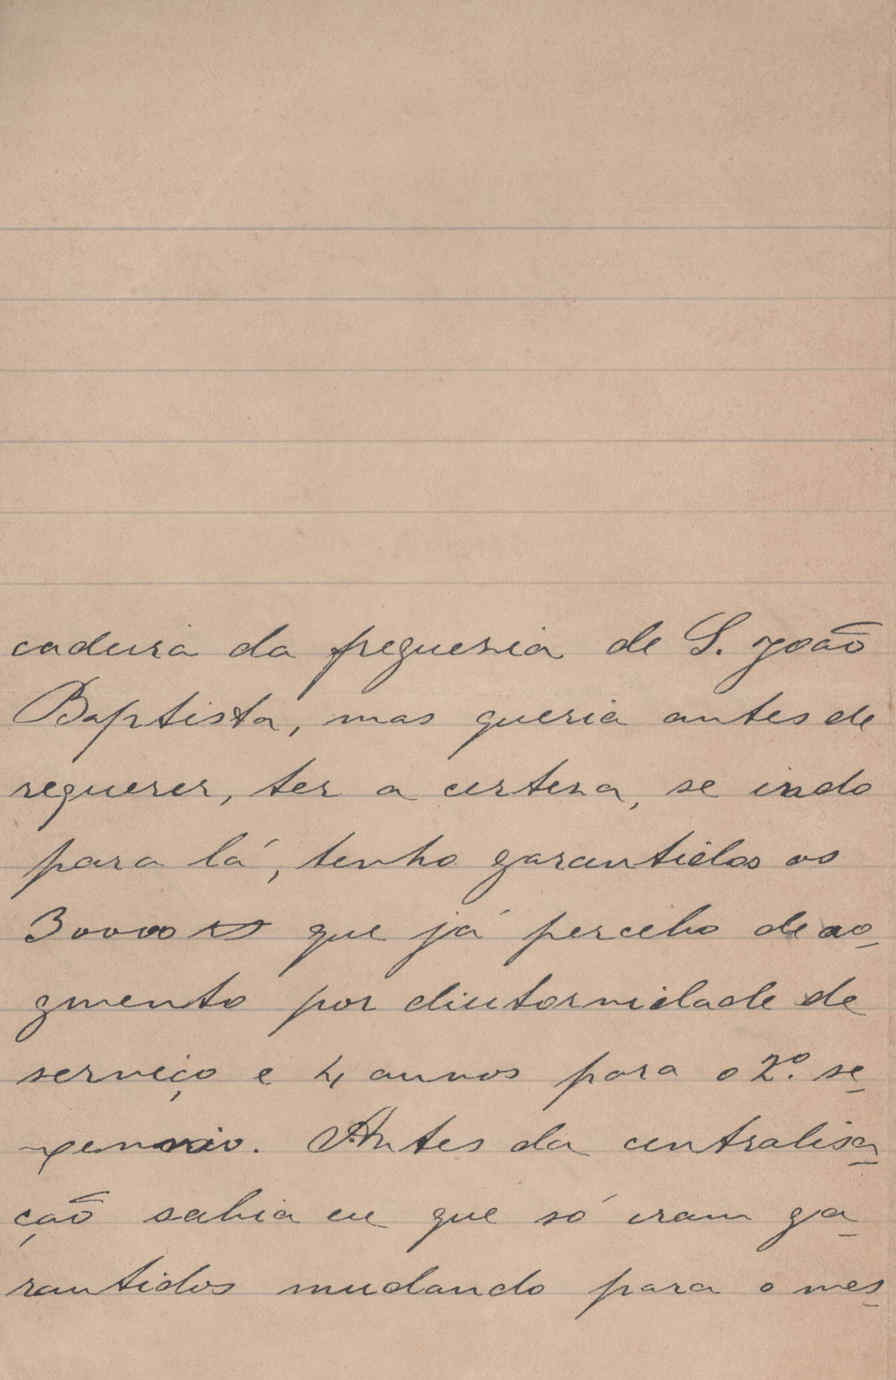 cadeira da freguesia de S. João
Baptista, mas queria antes de
requerer, ter a certeza, se indo
para lá, tenho garantidos os
30000 rs que já percebo de ao-
gmento por diuturnidade de
serviço e 4 annos para o 2.º se-
xennio. Antes da centralisa-
ção sabia eu que só eram ga-
rantidos mudando para o mes-